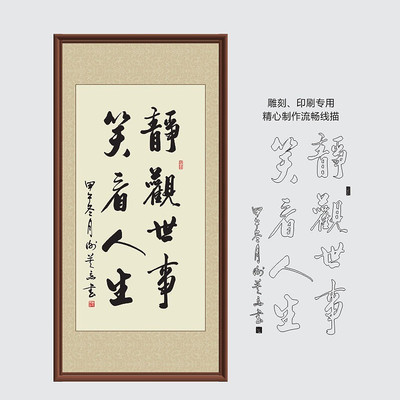 靜觀世事
笑看人生
甲午冬月
雕刻、印刷专用
精心制作流畅线描
靜觀世事
笑看人生
甲午冬月